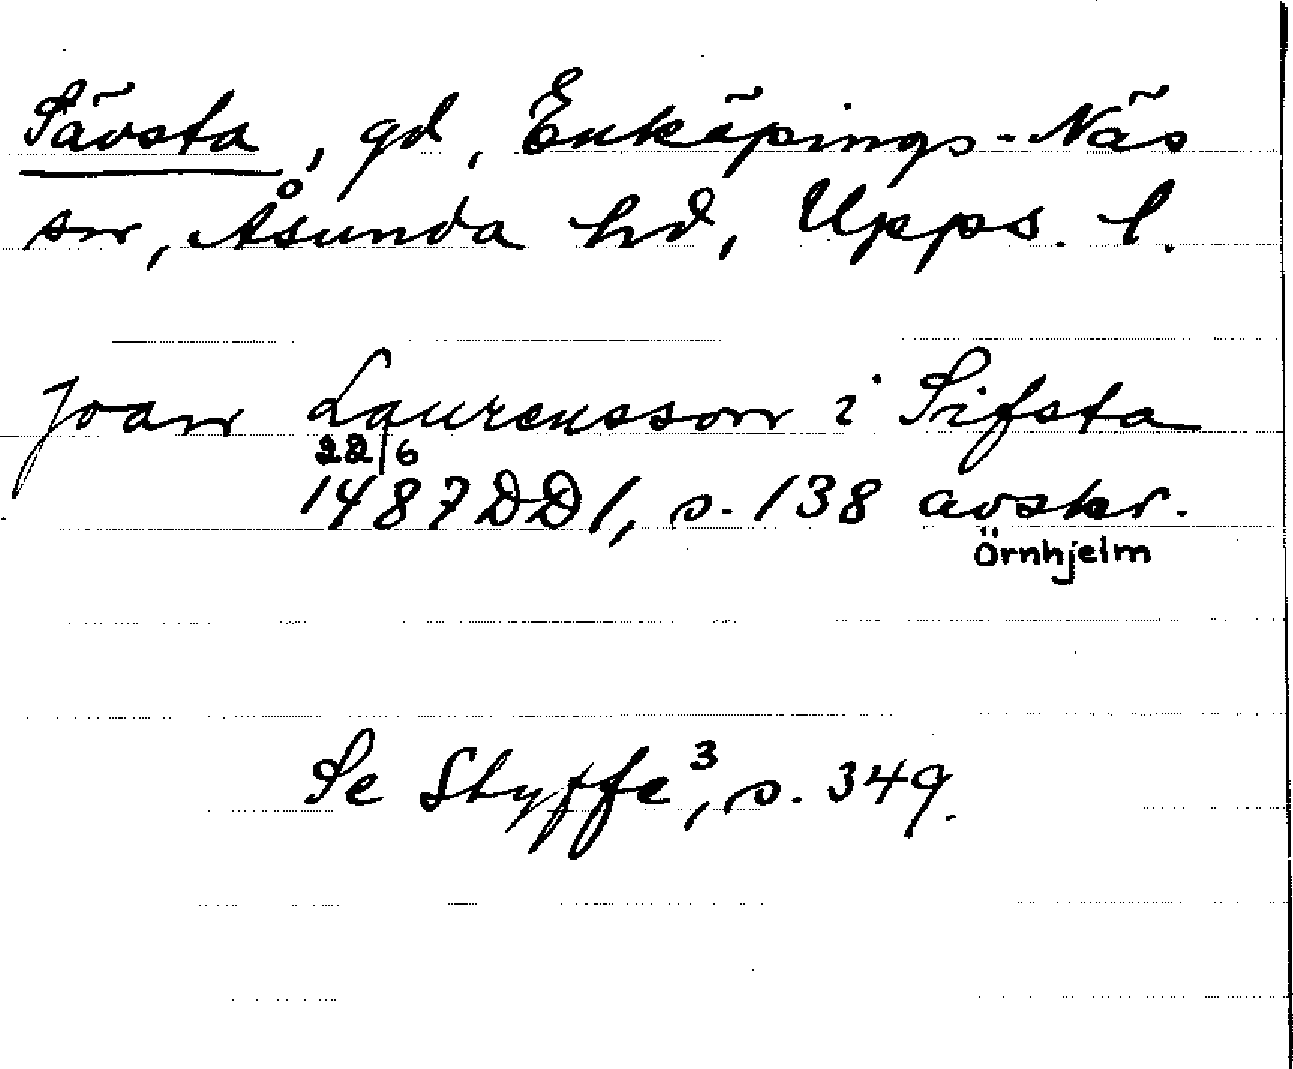 Sävsta, gd, Enköpings-Näs
sn, Åsunda hd, Upps. l.
Joan Laurensson i Sifsta
22/6
1487 DD 1, s. 138 avskr.
Örnhjelm
Se Styffe³, s. 349.